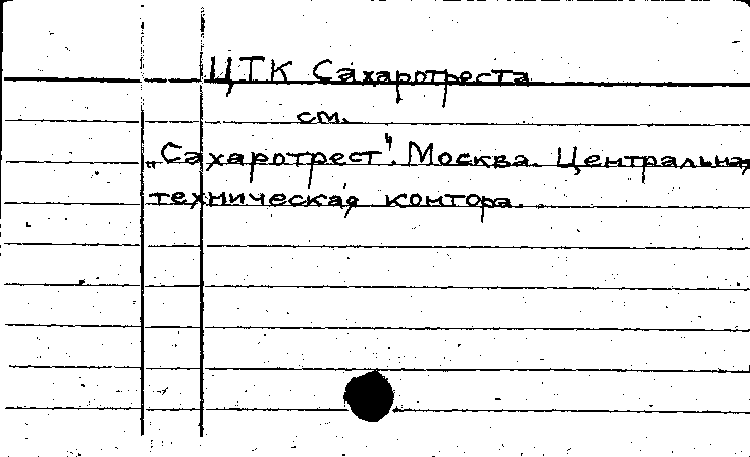 ЦТК Сахаротреста
см.
„Сахаротрест". Москва. Центральная
техническая контора.